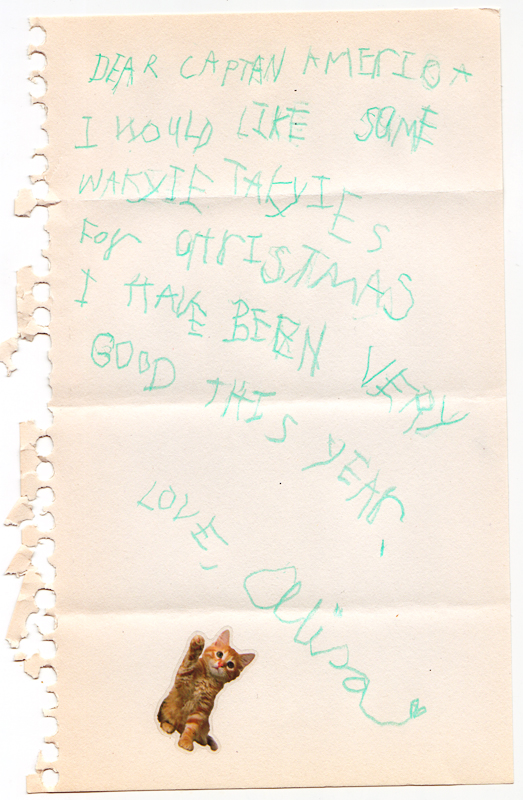 DEAR CAPTAN AMERICA
I WOULD LIKE SOME
WAKYIE TAKYIES
FOr CHrISTMAS
I HAVE BEEN VERY
GOOD THIS YEAr.
LOVE,
Alisa